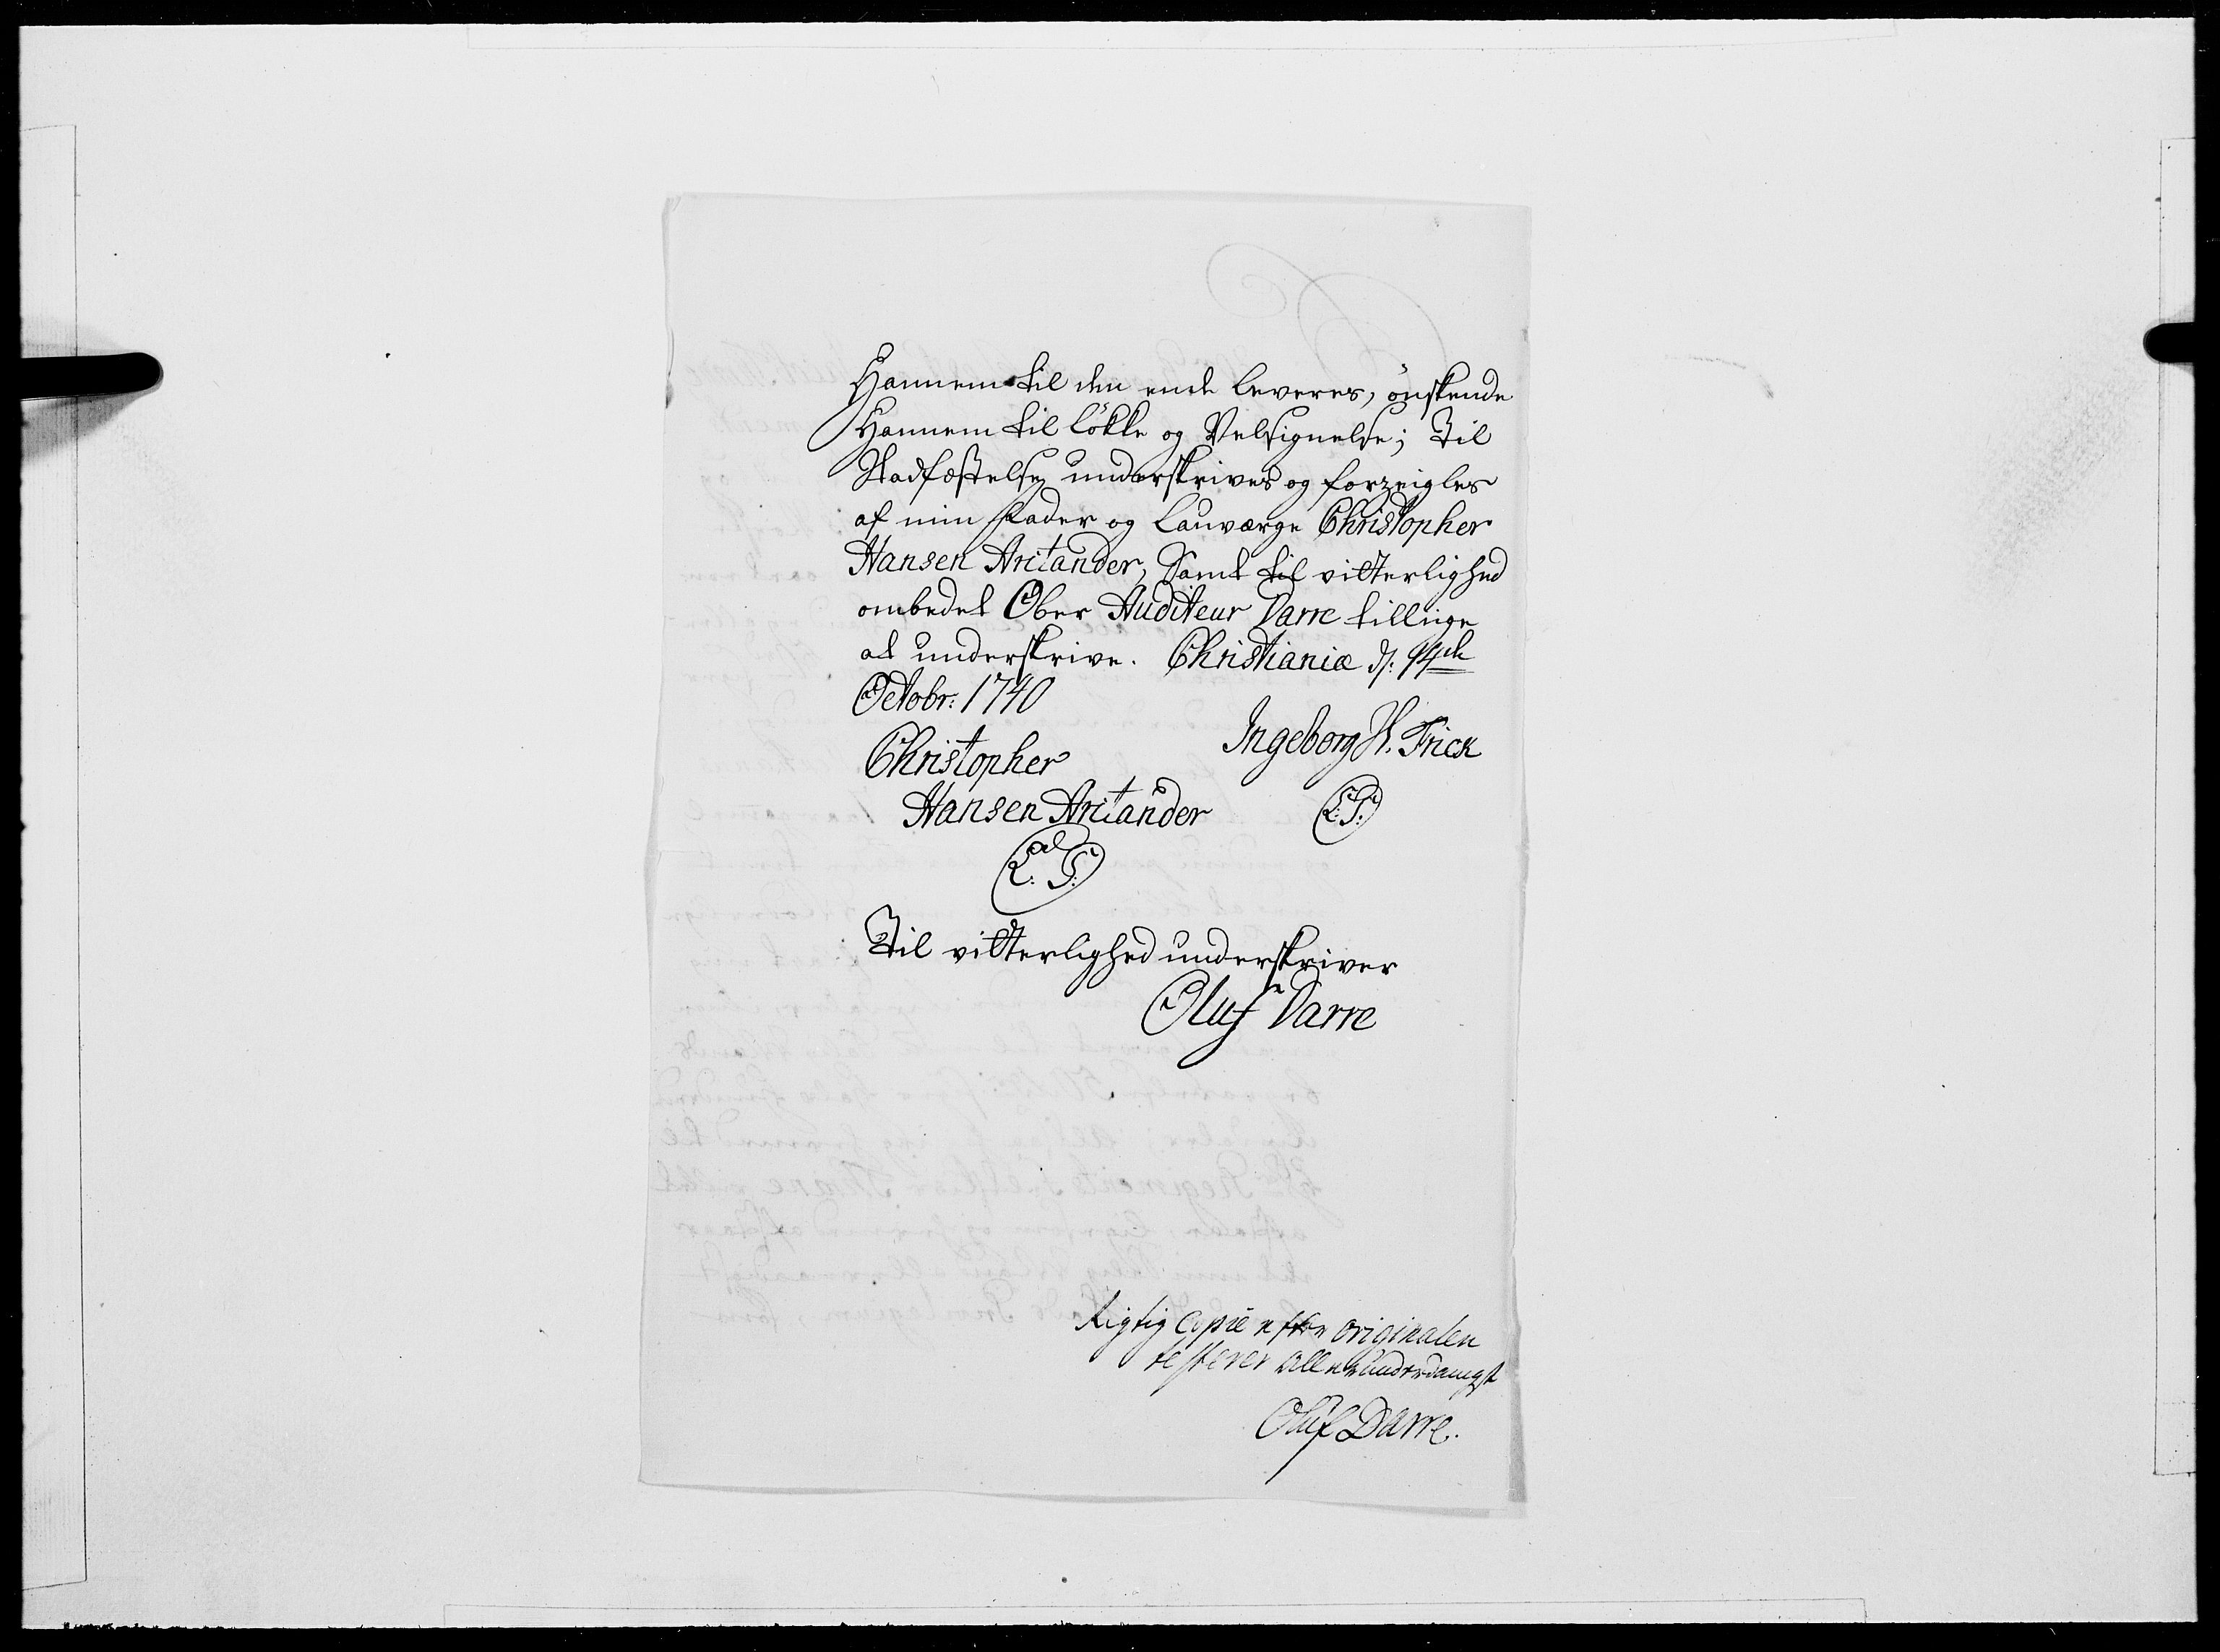 Hannem til den ende leveres, önskende
Hannem til lökke og Velsignelse; Til
Stadfæstelse underskrives og forzeigles
af min Fader og Lauværge Christopher
Hansen Aritander, Samt til vitterlighed
ombedet Ober Auditeur Darre tillige
at underskrive. Christianiæ d:
Octobr: 1740
Ingeborg H. Frick
Christopher
Hansen Aritander
L: S:
L: S:
Til vitterlighed underskriver
Oluf Darre
Rigtig Copie efter originalen
testerer allerunderdanigst
Oluf Darre.